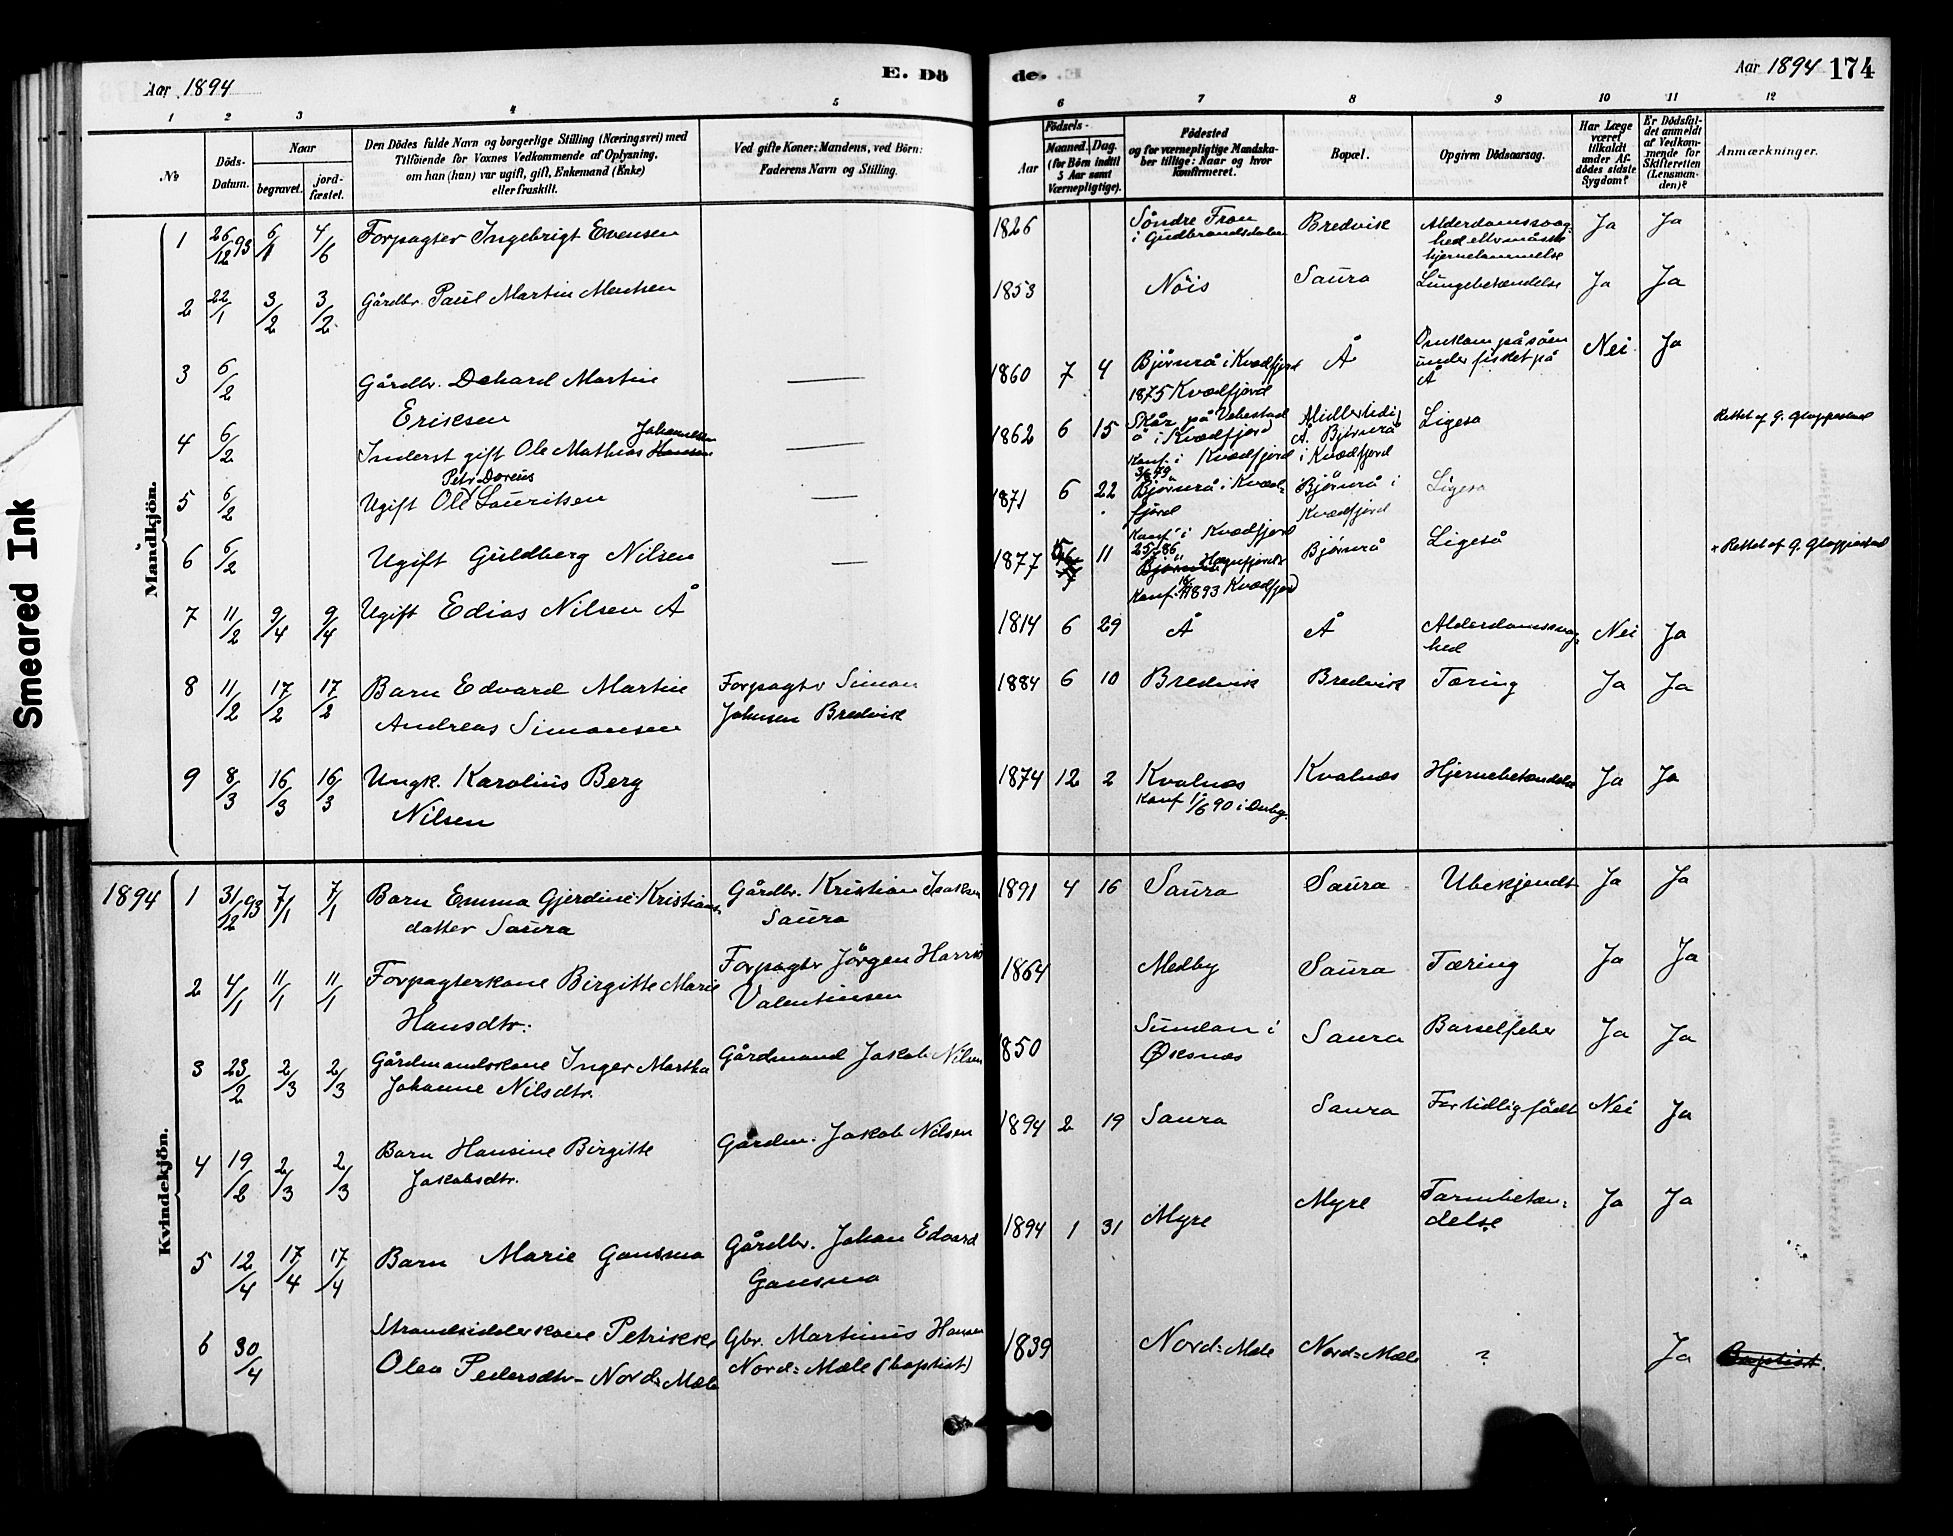 Aar 1894
E. Dö
de.
Aar 1894
174
1 2 3 4 5 6 7 8 9 10 11 12
No
Döds-
Datum.
Naar
begravet.
jord-
fæstet.
Den Dödes fulde Navn og borgerlige Stilling (Næringsvei) med
Tilföiende for Voxnes Vedkommende af Oplysning,
om han (hun) var ugift, gift, Enkemand (Enke)
eller fraskilt.
Ved gifte Koner: Mandens, ved Börn:
Faderens Navn og Stilling.
Födsels-
Aar
Maaned. Dag.
(for Börn indtil
5 Aar samt
Værnepligtige).
Födested
og for værnepligtige Mandska-
ber tillige: Naar og hvor
konfirmeret.
Bopæl.
Opgiven Dödsaarsag.
Har Læge
været
tilkaldt
under Af-
dödes sidste
Sygdom?
Er Dödsfal-
det anmeldt
af Vedkom-
mende for
Skifteretten
(Lensman-
den)?
Anmærkninger.
Smeared Ink
Mandkjön.
1 26/12 93 6/1 4/6 Forpagter Ingebrigt Evensen 1826 Söndre Fron Bredvik Alderdomssvag- Ja Ja
i Gudbrandsdalen hed eller måske
hjernelammelse
2 22/1 3/2 3/2 Gårdbr. Paul Martin 1853 Nöis Saura Lungebetændelse Ja Ja
3 6/2 Gårdbr. Martin 1860 7 4 Björnrå i Kvædfjord Å Omkom på söen Nei Ja
Eriksen 1875 Kvædfjord under fisket på
Å
4 6/2 Inderst gift Ole Mathias Hansen Johannessen 1862 6 15 på i Kvædfjord Å Björnrå Ligeså Rettet af G.
Konf. i Kvædfjord i Kvædfjord
5 6/2 Ugift Ole Lauritsen 1871 6 22 Björnrå i Kvæd- Björnrå i Ligeså
Petr Doreus fjord Kvædfjord
Konf. i Kvædfjord
6 6/2 Ugift Guldberg Nilsen 1877 11 Björnrå Björnrå Ligeså Rettet af G.
Konf. 1893 Kvædfjord
7 11/2 9/4 9/4 Ugift Edias Nilsen Å 1814 6 29 Å Å Alderdomssvag- Nei Ja
hed
8 11/2 17/2 17/2 Barn Edvard Martin Forpagter Simon 1884 6 10 Bredvik Bredvik Tæring Ja Ja
Andreas Simonsen Johnsen Bredvik
9 8/3 16/3 16/3 Ungk. Karolius Berg 1874 12 2 Kvalnæs Kvalnæs Hjernebetændelse Ja Ja
Nilsen
Kvindekjön.
1894 1 31/12 93 7/1 7/1 Barn Emma Gjerdine Kristians- Gårdbr. Kristian Isaksen 1891 4 16 Saura Saura Ubekjendt Ja Ja
datter Saura Saura
2 4/1 11/1 11/1 Forpagterkone Birgitte Marie Forpagter Jörgen Harris 1864 Medby Saura Tæring Ja Ja
Hansdtr. Valentinsen
3 23/2 2/3 2/3 Gårdmandskone Inger Martha Gårdmand Jakob Nilsen 1850 Sundan i Saura Barselfeber Ja Ja
Johanne Nilsdtr. Øksnæs
4 19/2 2/3 2/3 Barn Hansine Birgitte Gårdm. Jakob Nilsen 1894 2 19 Saura Saura For tidlig født Nei Ja
Jakobsdtr.
5 12/4 17/4 17/4 Barn Marie Gansmo Gårdbr. Johan Edvard 1894 1 31 Myre Myre Tarmbetæn- Ja Ja
Gansmo delse
6 30/4 Strandsidderkone Petrikke Gbr. Martinus Hansen 1839 Nord-Mæle Nord-Mæle ? Ja Baptist.
Olea Pedersdtr. Nord-Mæle Nord-Mæle (baptist)